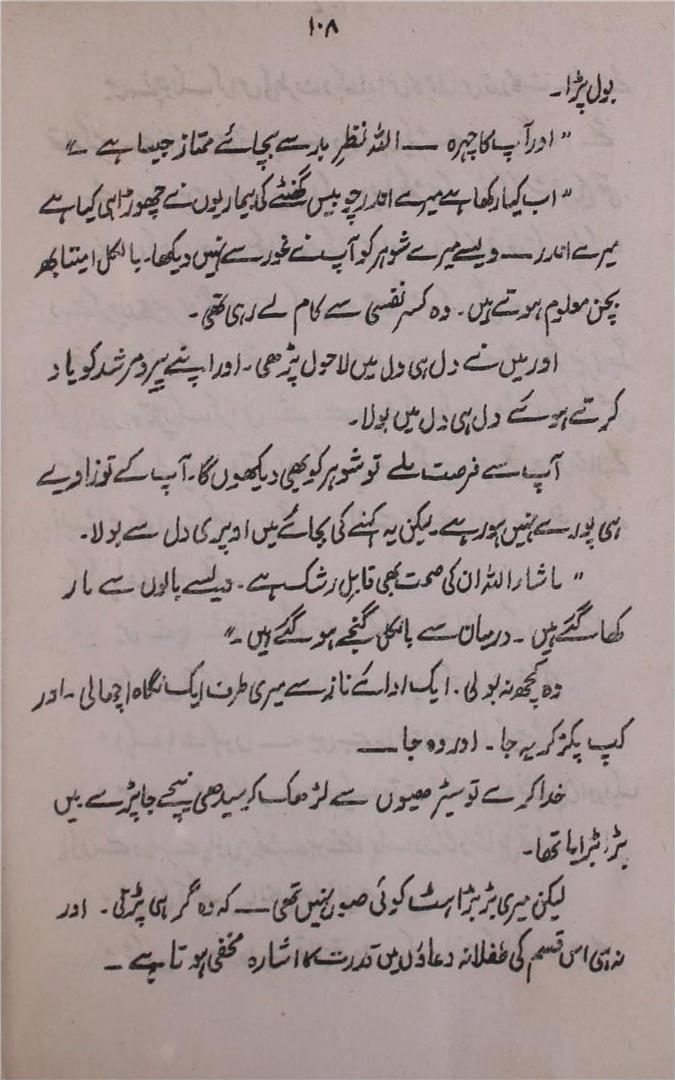 ۱۰۸
بول پڑا۔
"اور آپ کا چہرہ — اللہ نظرِ بد سے بچائے ممتاز جیسا ہے ۔"
"اب کیا رکھا ہے میرے اندر چوبیس گھنٹے کی بیماریوں نے چھوڑا ہی کیا ہے
میرے اندر — ویسے میرے شوہر کو آپ نے غور سے نہیں دیکھا۔ بالکل امیتابھ
بچن معلوم ہوتے ہیں۔ وہ کسرِ نفسی سے کام لے رہی تھی۔
اور میں نے دل ہی دل میں لاحول پڑھی۔ اور اپنے پیر و مرشد کو یاد
کرتے ہوئے دل ہی دل میں بولا۔
آپ سے فرصت ملے تو شوہر کو بھی دیکھوں گا۔ آپ کے تو زاویے
ہی پورے نہیں ہو رہے۔ لیکن یہ کہنے کی بجائے میں اوپری دل سے بولا۔
"ماشاء اللہ ان کی صحت بھی قابلِ رشک ہے۔ ویسے بالوں سے مار
کھا گئے ہیں۔ درمیان سے بالکل گنجے ہو گئے ہیں۔"
وہ کچھ نہ بولی۔ ایک ادائے ناز سے میری طرف ایک نگاہ اچھالی۔ اور
کپ پکڑ کر یہ جا۔ اور وہ جا —
خدا کرے تو سیڑھیوں سے لڑھک کر سیدھی نیچے جا پڑے میں
بڑبڑایا تھا۔
لیکن میری بڑبڑاہٹ کوئی صور نہیں تھی — کہ وہ گر ہی پڑتی۔ اور
نہ ہی اس قسم کی طفلانہ دعاؤں میں قدرت کا اشارہ مخفی ہوتا ہے ۔